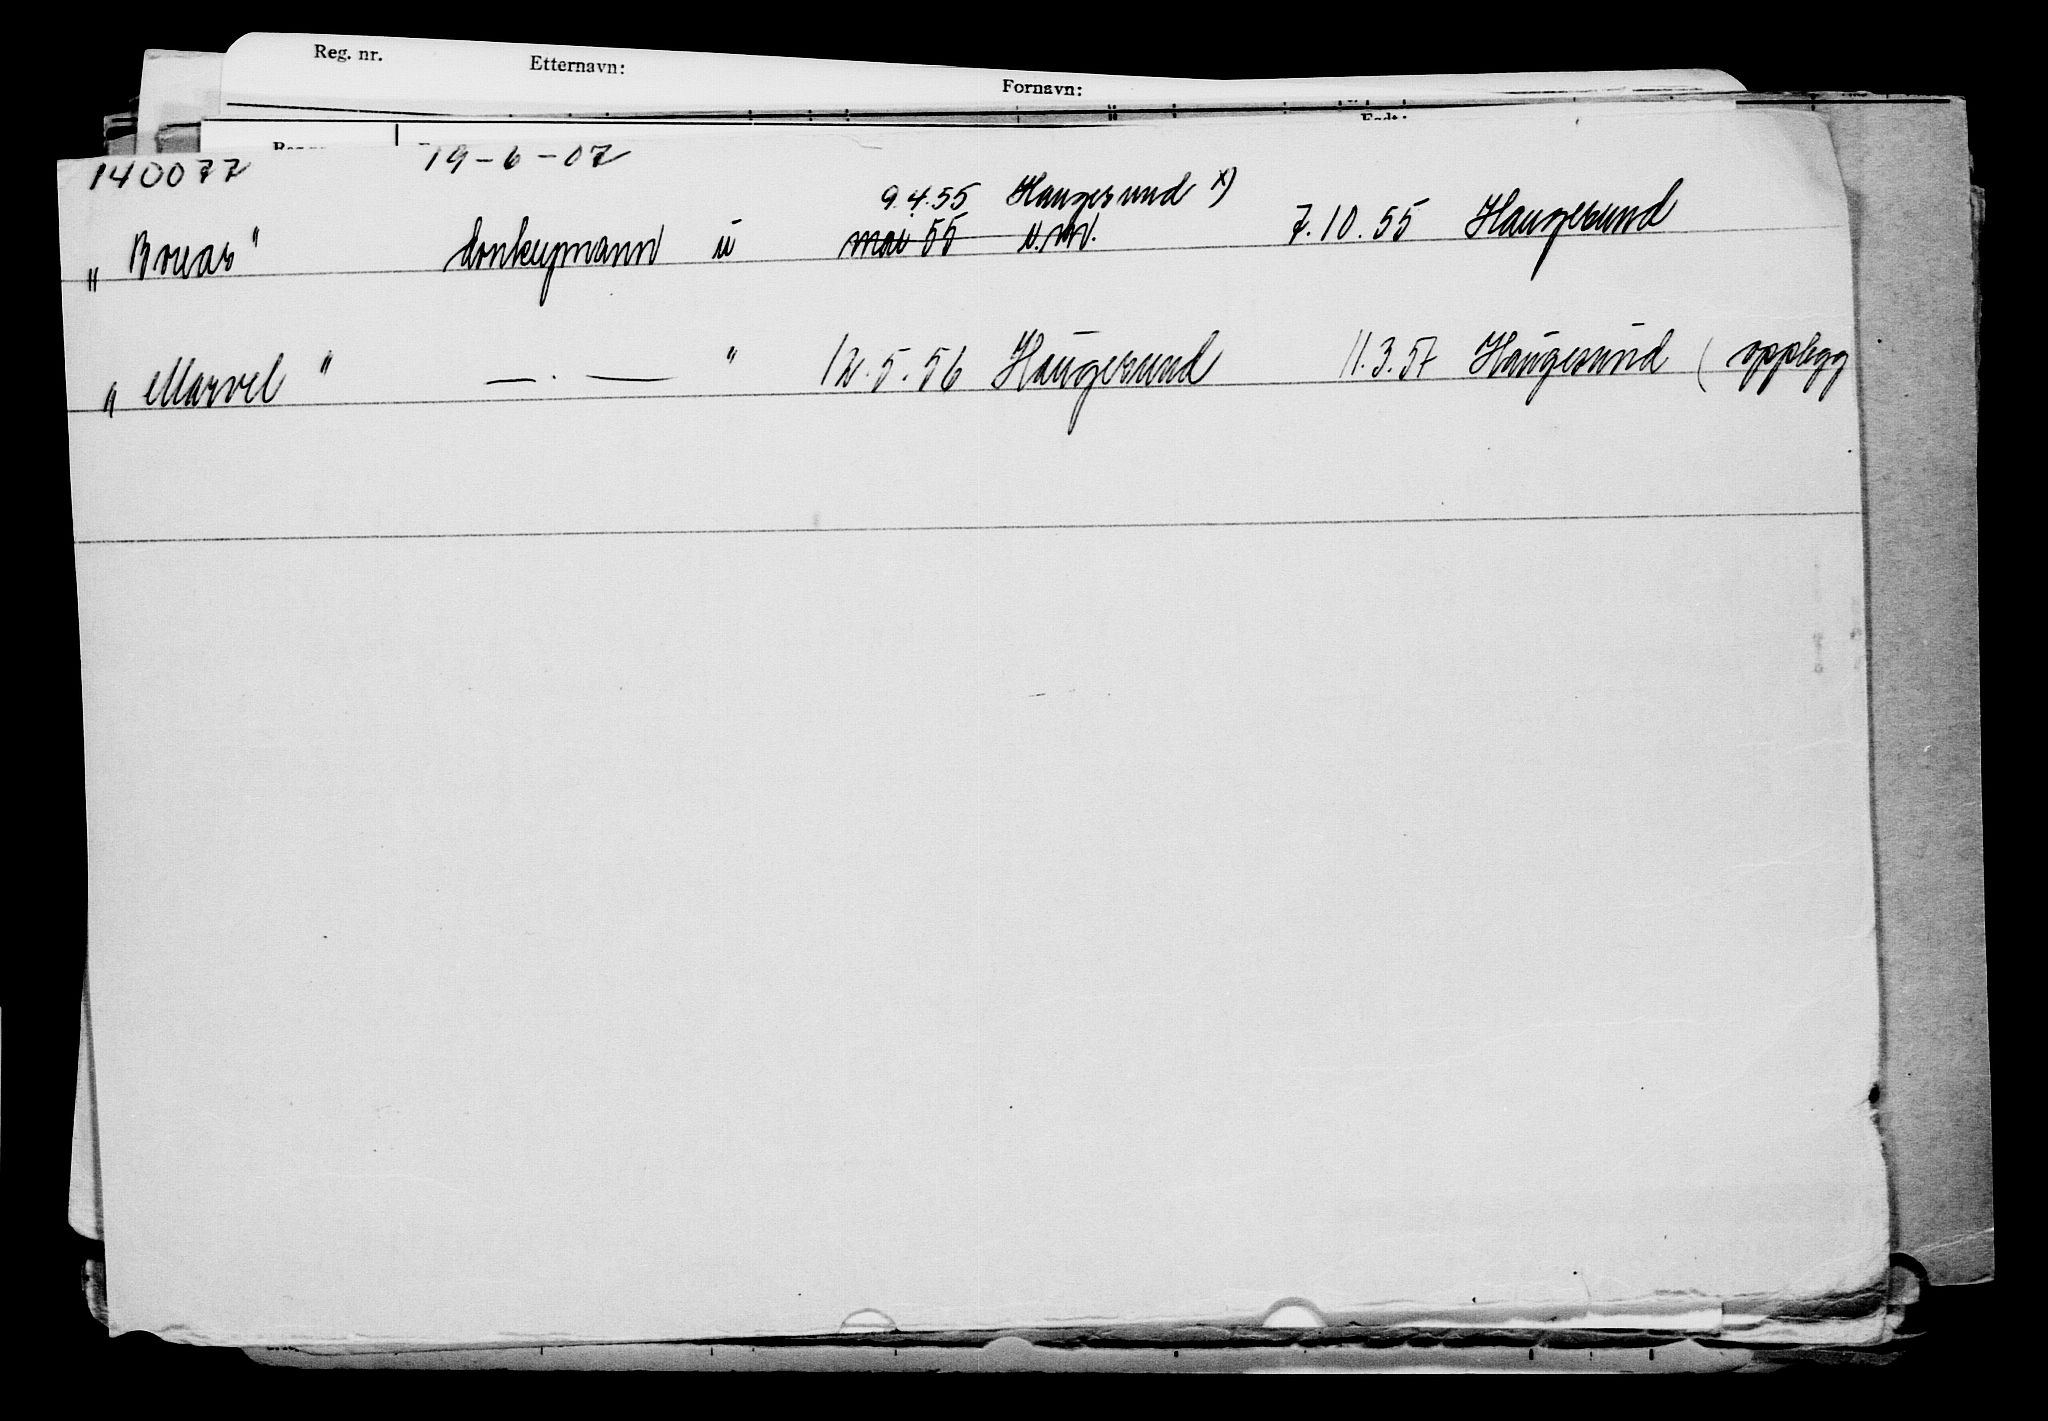 Reg. nr. Etternavn: Fornavn:
140077 19-6-07
9.4.55 Haugesund x)
„Borvar" donkeymann u mai 55 u.l.d. 7.10.55 Haugesund
„Marvel" — . — " 12.5.56 Haugesund 11.3.57 Haugesund (opplegg